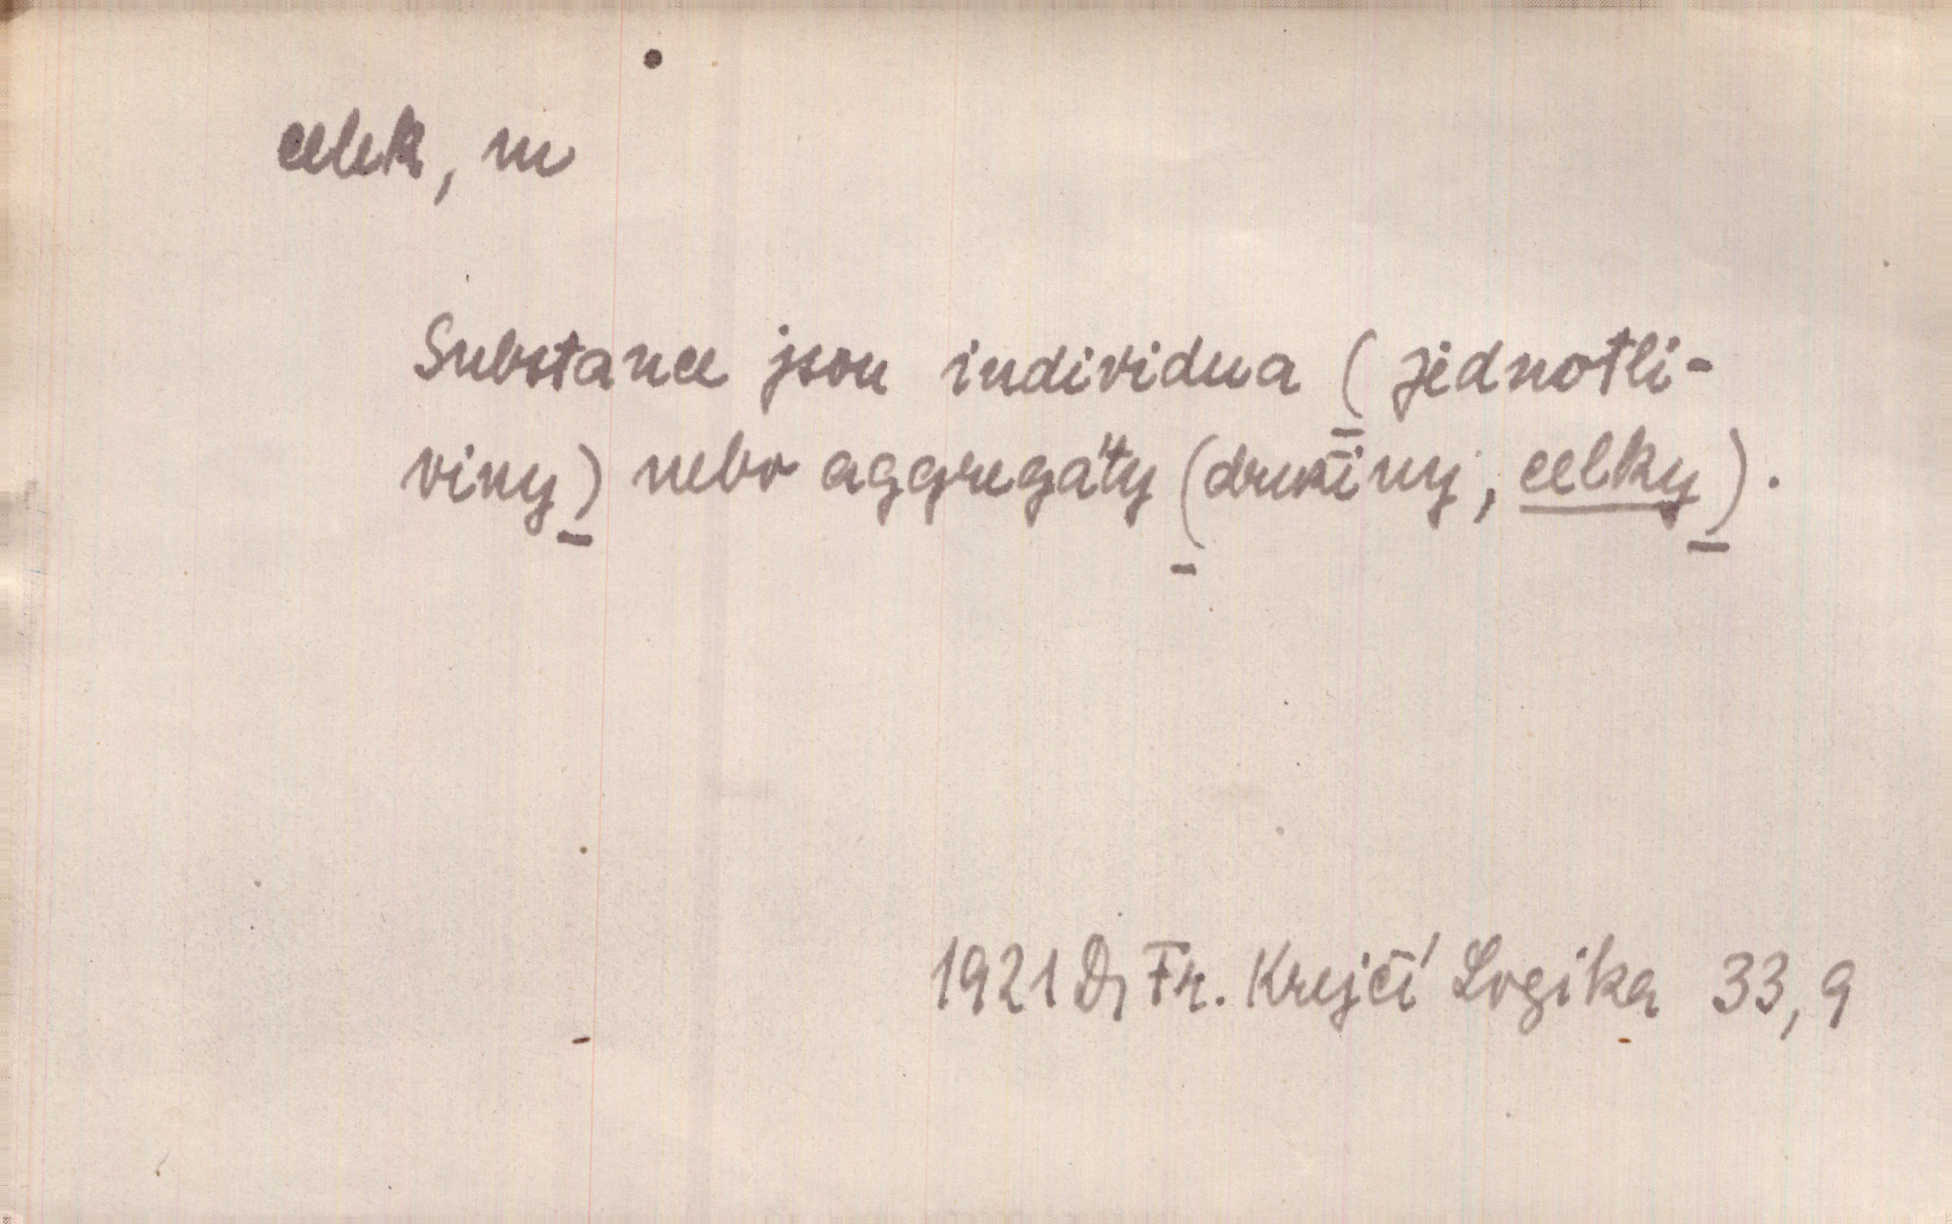 celek, m
Substance jsou individua (jednotli-
viny) nebo aggregáty (družiny, celky).
1921 Dr Fr. Krejčí Logika 33, 9